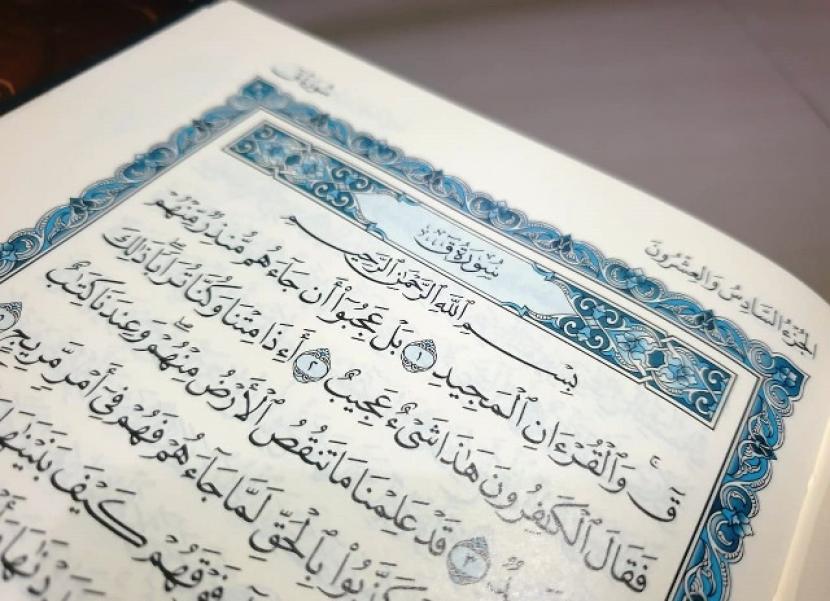 الجُزْءُ السَّادِسُ وَالعِشْرُونَ
سُورَةُ ق
سُورَةُ ق
بِسْمِ ٱللَّهِ ٱلرَّحْمَٰنِ ٱلرَّحِيمِ
قٓۚ وَٱلْقُرْءَانِ ٱلْمَجِيدِ ١ بَلْ عَجِبُوٓا۟ أَن جَآءَهُم مُّنذِرٌ مِّنْهُمْ
فَقَالَ ٱلْكَٰفِرُونَ هَٰذَا شَىْءٌ عَجِيبٌ ٢ أَءِذَا مِتْنَا وَكُنَّا تُرَابًاۖ ذَٰلِكَ
٣ قَدْ عَلِمْنَا مَا تَنقُصُ ٱلْأَرْضُ مِنْهُمْۖ وَعِندَنَا كِتَٰبٌ
كَذَّبُوا۟ بِٱلْحَقِّ لَمَّا جَآءَهُمْ فَهُمْ فِىٓ أَمْرٍ مَّرِيجٍ
فَوْقَهُمْ كَيْفَ بَنَيْنَٰهَا